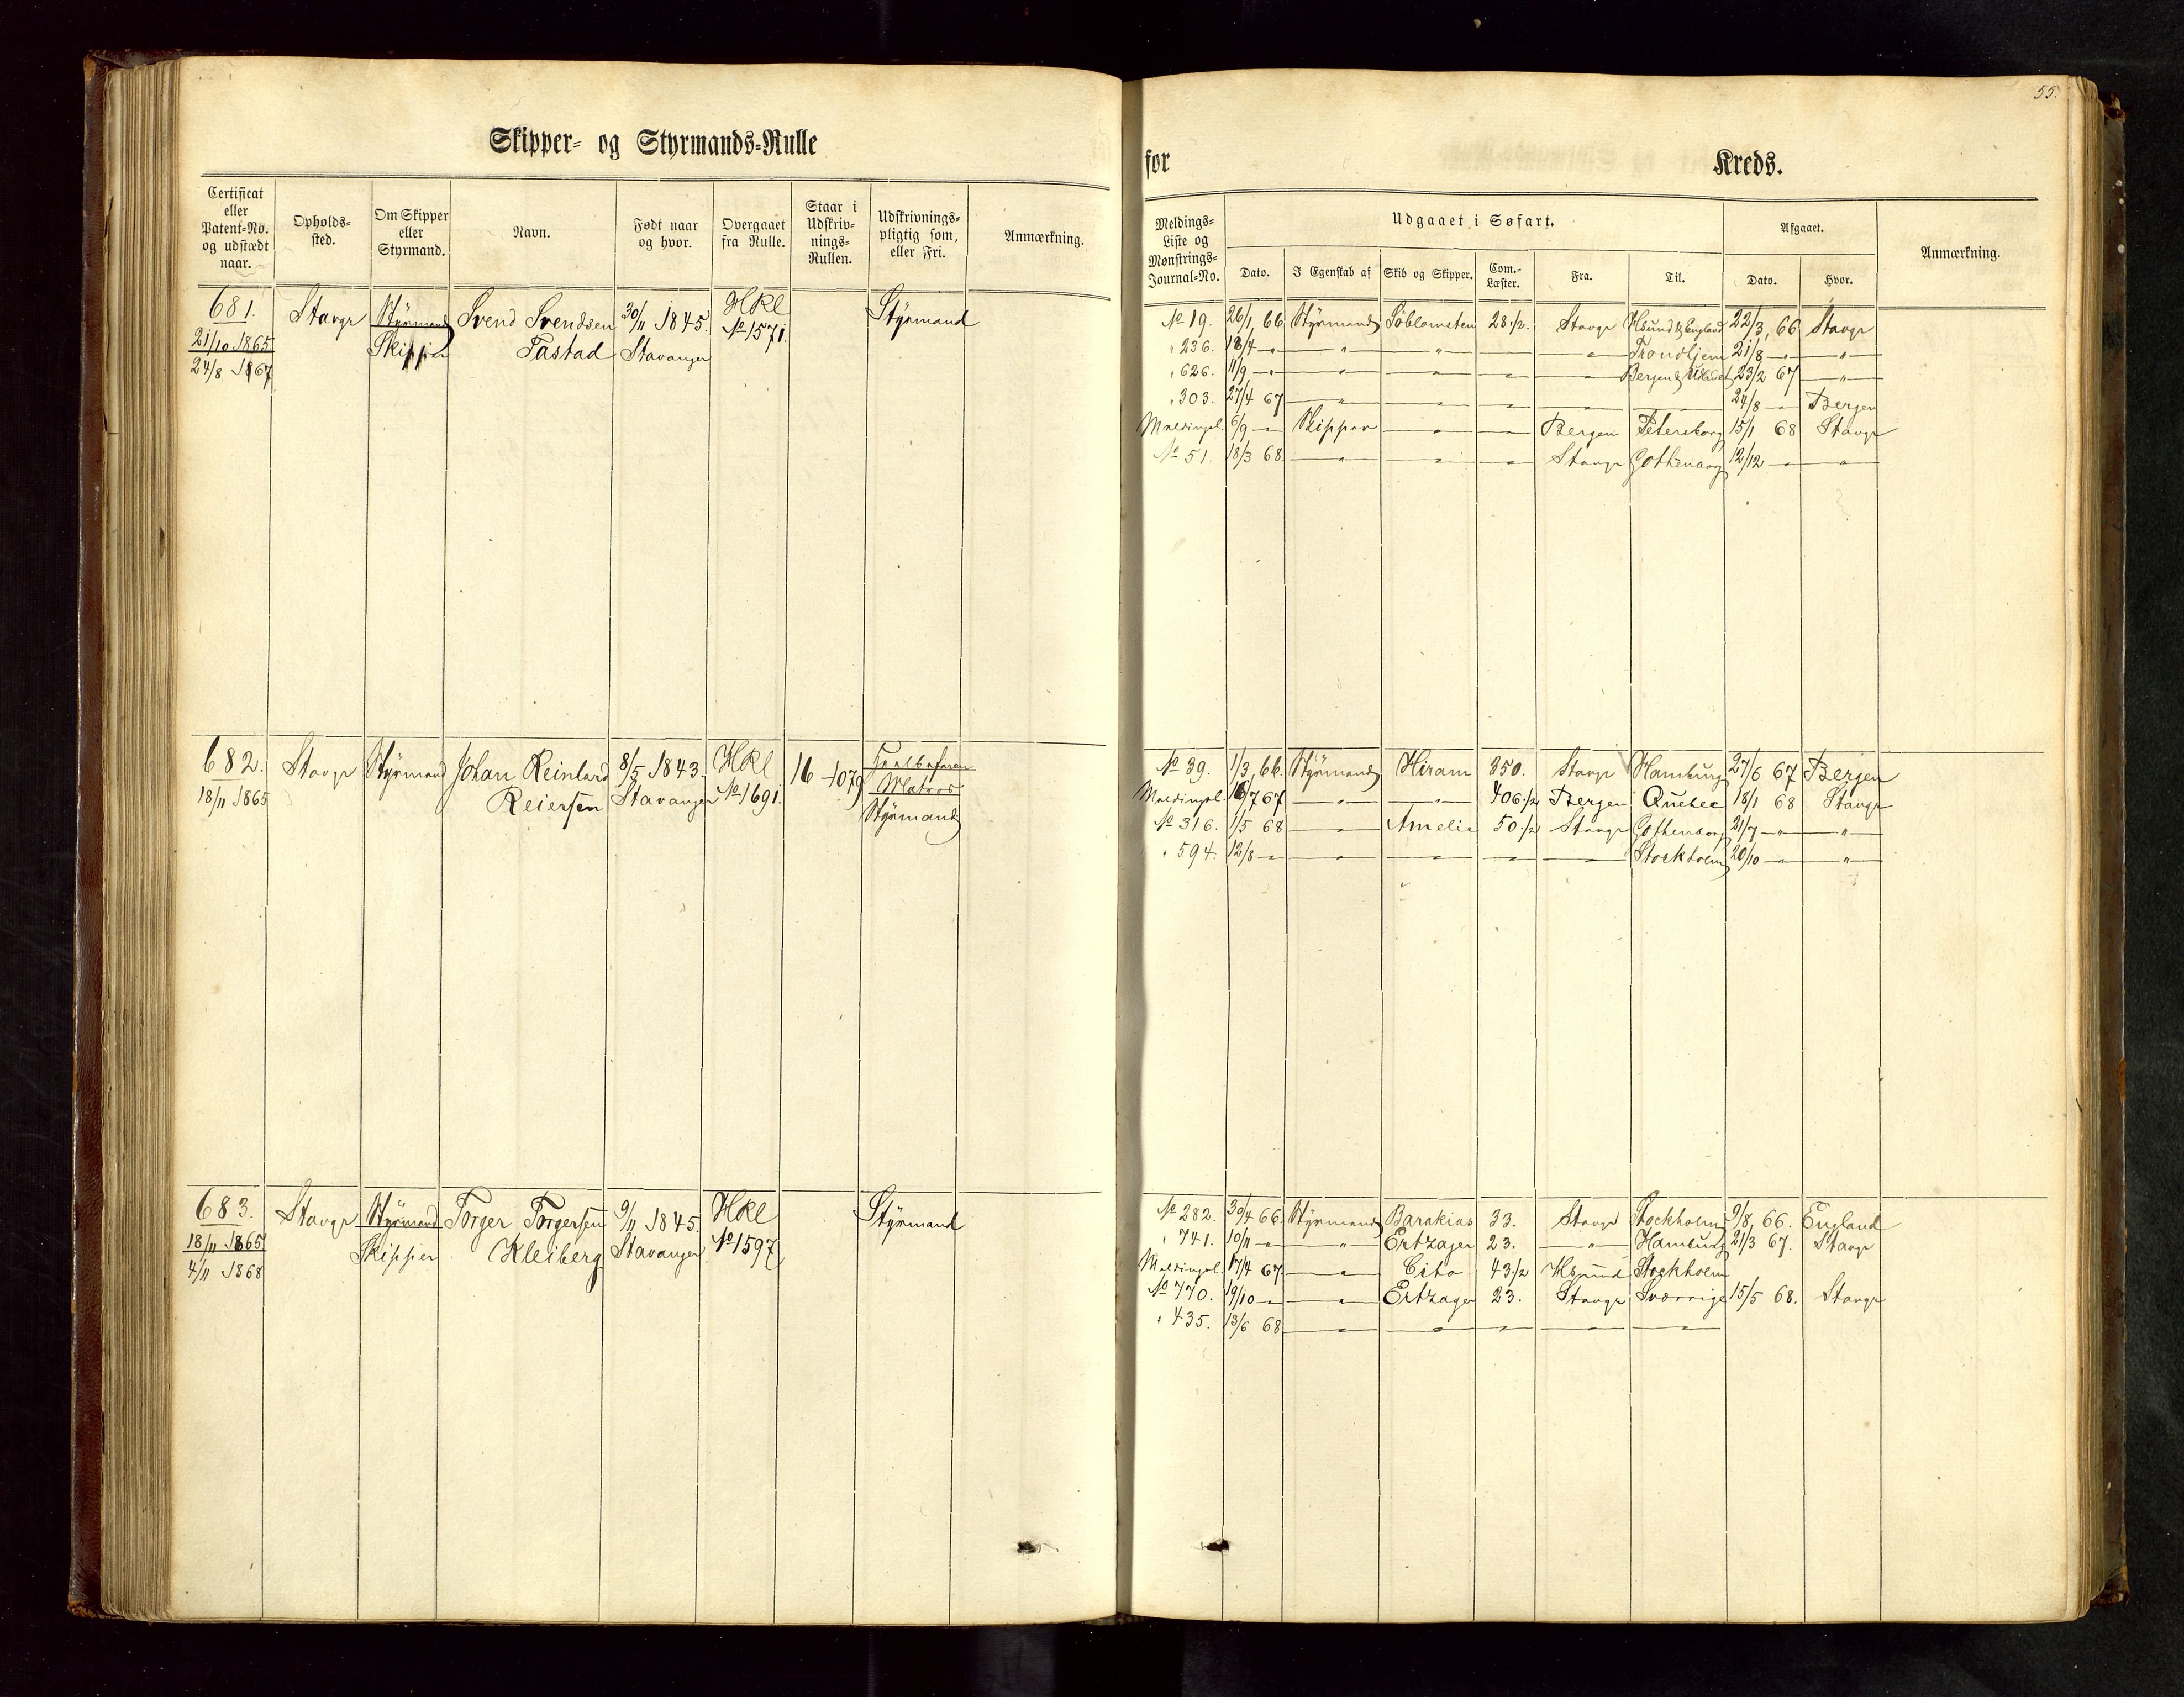 Skipper- og Styrmands-Rulle
Certificat eller Patent-No. og udstædt naar.
Opholds-sted.
Om Skipper eller Styrmand.
Navn.
Født naar og hvor.
Overgaaet fra Rulle.
Staar i Udskriv-nings-Rullen.
Udskrivnings-pligtig som, eller Fri.
Anmærkning.
681. Stavgr Styrmand Svend Svendsen 30/11 1845. HRl Styrmand
21/10 1865 Skipper Tastad Stavanger No 1571.
24/8 1867
682. Stavgr Styrmand Johan Reinhard 8/5 1843. HRl 16 - 1079 Heelbefaren
18/11 1865 Reiersen Stavanger No 1691. Matros
Styrmand
683. Stavgr Styrmand Torger Torgersen 9/11 1845. HRl Styrmand
18/11 1865 Skipper Kleiberg Stavanger No 1597
4/11 1868
55.
for Kreds.
Meldings-Liste og Mønstrings-Journal-No.
Udgaaet i Søfart.
Afgaaet.
Anmærkning.
Dato. I Egenskab af Skib og Skipper. Com.-Læster. Fra. Til. Dato. Hvor.
No 19. 26/1 66 Styrmand Söblomsten 28 1/2. Stavgr Hsund & England 22/3, 66 Stavgr
" 236. 18/4 - " - " - " - - - " - Trondhjem 21/8 - " - - " -
" 626. 11/9 - " - " - " - - - " - Bergen & Udlandet 23/2 67 - " -
" 303. 27/4 67 - " - - " - - " - - " - - " - 24/8 - " - Bergen
Meldingsl. 6/9 - " - Skipper - " - - " - Bergen Petersborg 15/1 68 Stavgr
No 51. 18/3 68 - " - - " - - " - Stavgr Gothenborg 12/12 - " - - " -
No 39. 1/3, 66. Styrmand Hiram 350. Stavgr Hamburg 27/6 67 Bergen
Meldingsl. 16/7 67 - " - - " - 406 1/2 Bergen Quebec 18/1 68 Stavgr
No 316. 1/5 68 - " - Amelie 50 1/2 Stavgr Gothenborg 21/7 - " - - " -
" 594. 12/8 - " - - " - - " - - " - - " - Stockholm 20/10 - " - - " -
No 282. 30/4 66. Styrmand Barakias 33. Stavgr Stockholm 9/8, 66. England
" 741. 10/11 - " - - " - Ertzager 23. - " - Hamburg 21/3 67. Stavgr
Meldingsl. 17/4 67. - " - Cito 43 1/2 Hsund Stockholm
No 770. 19/10 - " - - " - Ertzager 23. Stavgr Sverrige 15/5 68. Stavgr
" 435. 13/6 68 - " - - " - - " - - " - - " -